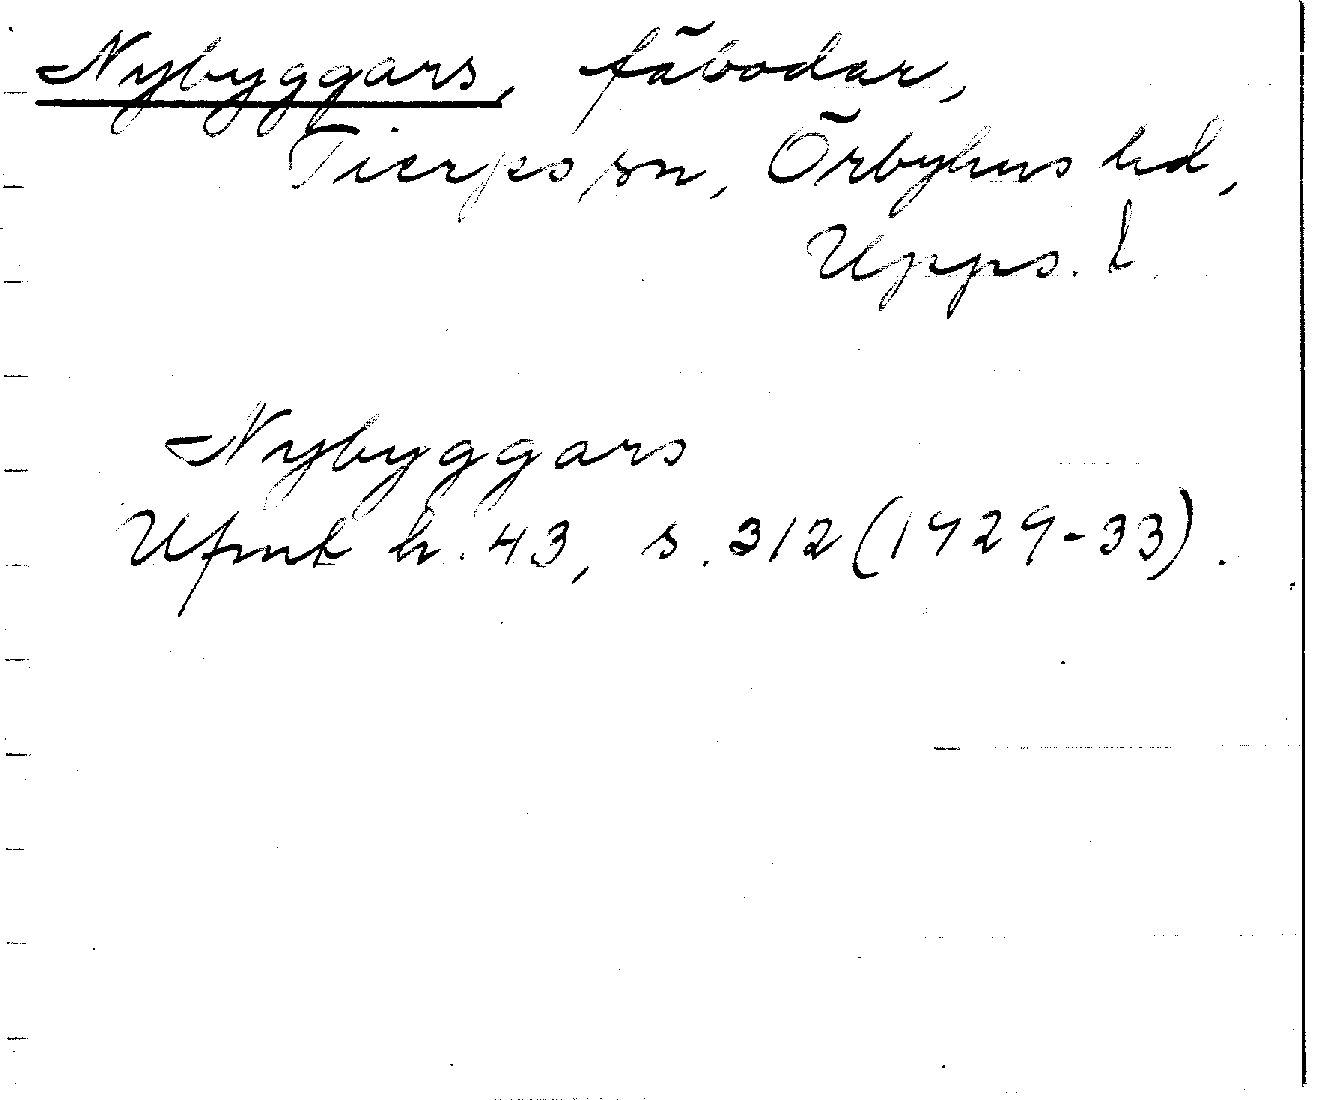 Nybyggars, fäbodar,
Tierps sn, Örbyhus hd,
Upps. l.
Nybyggars
Ufmt h. 43, s. 312 (1929-33).